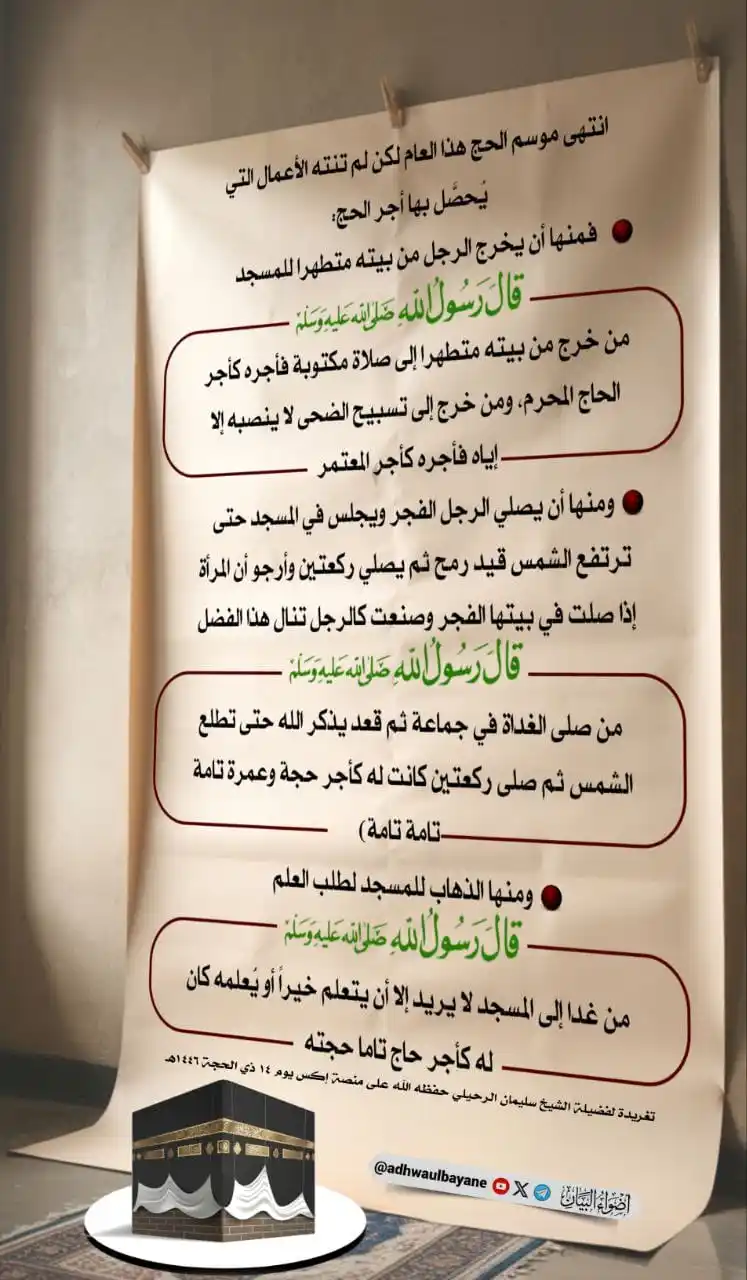 انتهى موسم الحج هذا العام لكن لم تنته الأعمال التي
يُحصَّل بها أجر الحج:
فمنها أن يخرج الرجل من بيته متطهرا للمسجد
قَالَ رَسُولُ اللهِ صَلَّى اللهُ عَلَيْهِ وَسَلَّمَ
من خرج من بيته متطهرا إلى صلاة مكتوبة فأجره كأجر
الحاج المحرم، ومن خرج إلى تسبيح الضحى لا ينصبه إلا
إياه فأجره كأجر المعتمر
ومنها أن يصلي الرجل الفجر ويجلس في المسجد حتى
ترتفع الشمس قيد رمح ثم يصلي ركعتين وأرجو أن المرأة
إذا صلت في بيتها الفجر وصنعت كالرجل تنال هذا الفضل
قَالَ رَسُولُ اللهِ صَلَّى اللهُ عَلَيْهِ وَسَلَّمَ
من صلى الغداة في جماعة ثم قعد يذكر الله حتى تطلع
الشمس ثم صلى ركعتين كانت له كأجر حجة وعمرة تامة
تامة تامة)
ومنها الذهاب للمسجد لطلب العلم
قَالَ رَسُولُ اللهِ صَلَّى اللهُ عَلَيْهِ وَسَلَّمَ
من غدا إلى المسجد لا يريد إلا أن يتعلم خيراً أو يُعلمه كان
له كأجر حاج تاما حجته
تغريدة لفضيلة الشيخ سليمان الرحيلي حفظه الله على منصة إكس يوم ١٤ ذي الحجة ١٤٤٦هـ
@adhwaulbayane
أضواء البيان